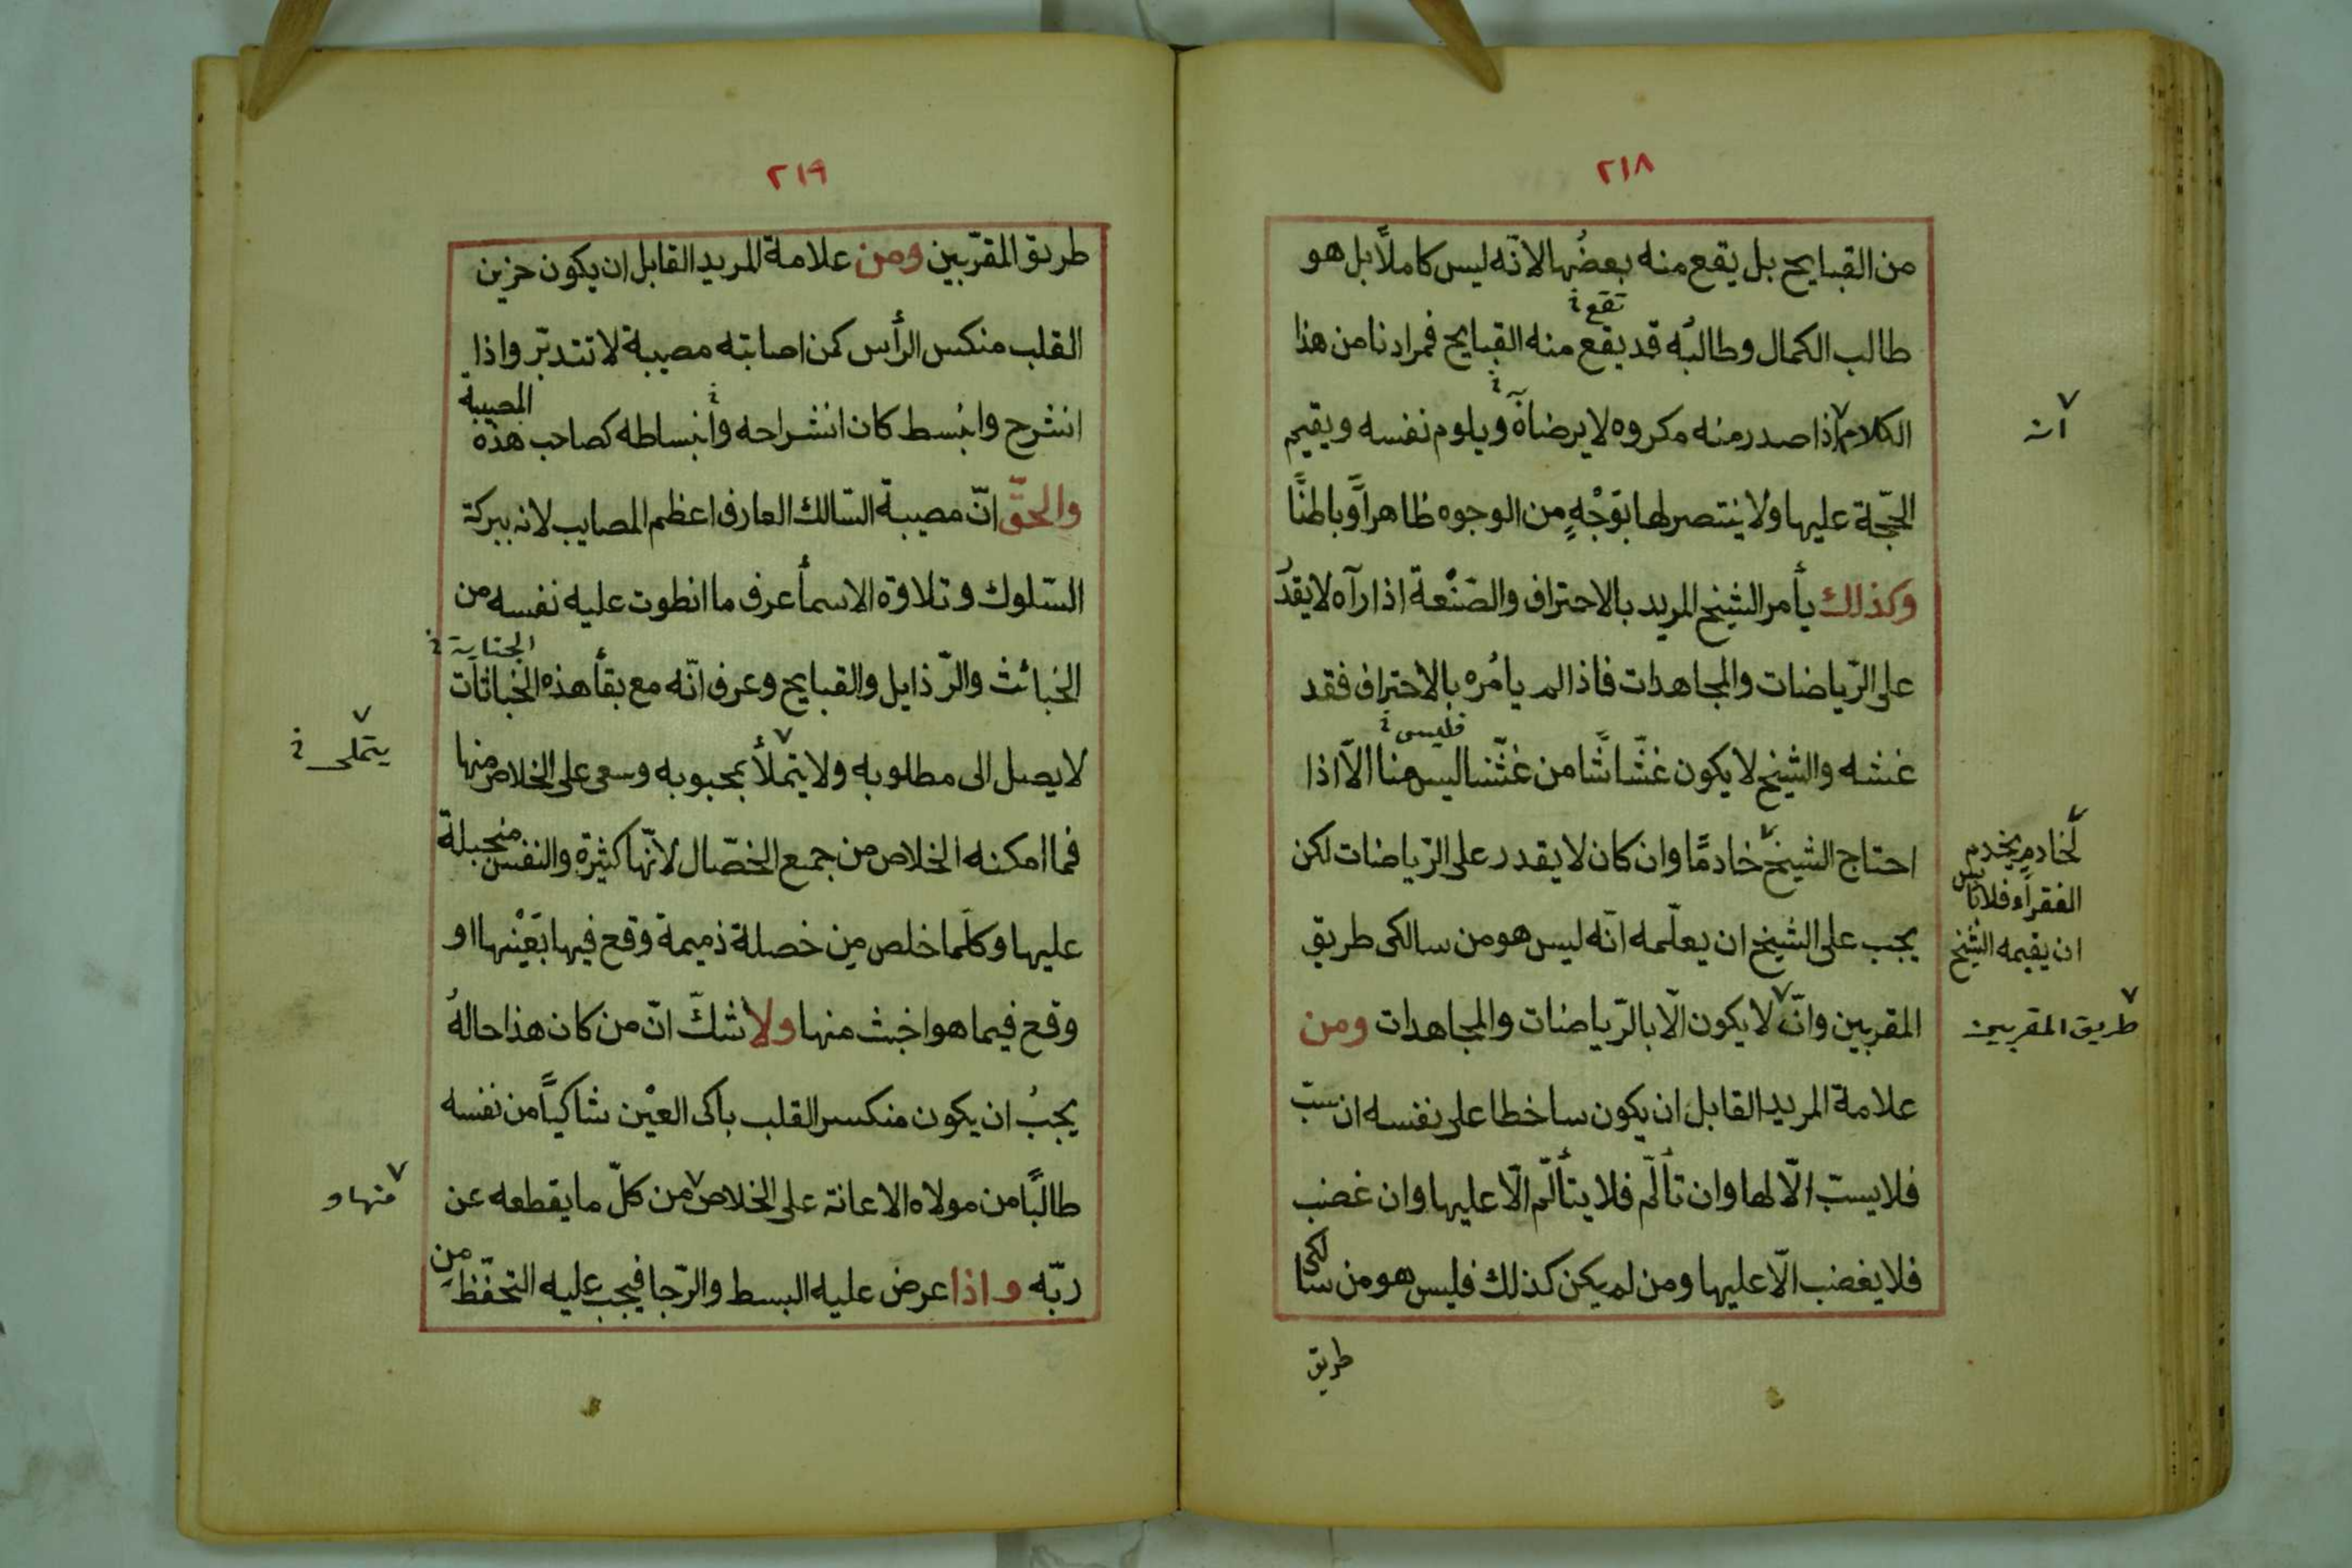 ٢١٨
من القبايح بل يقع منه بعضُها لانّه ليس كاملًا بل هو
تقع خ
طالب الكمال وطالبُه قد يقع منه القبايح فمرادنا من هذا
الكلام اذا صدر منه مكروه لا يرضاه ويلوم نفسه ويقيم
انه
الحجّة عليها ولا ينتصر لها بوَجْهٍ من الوجوه ظاهراً وباطنًا
وكذلك يأمر الشيخ المريد بالاحتراف والصَنْعة اذا رآه لا يقدُ
على الرّياضات والمجاهدات فاذا لم يامُره بالاحتراف فقد
فليس خ
غشه والشيخ لا يكون غشّاشًا من غشّنا ليس منا الّا اذا
احتاج الشيخ خادمًا وان كان لا يقدر على الرّياضات لكن
لخادمٍ يخدم
الفقراء فلا بأس
ان يقيمه الشيخ
يجب على الشيخ ان يعلّمه انّه ليس هو من سالكى طريق
المقربين وانّ لا يكون الّا بالرّياضات والمجاهدات ومن
طريق المقربين
علامة المريد القابل ان يكون ساخطا على نفسه ان سبّ
فلا يسبّ الّا لها وان تألّم فلا يتألّم الّا عليها وان غضب
فلا يغضب الّا عليها ومن لم يكن كذلك فليس هو من سالكى
طريق
٢١٩
طريق المقرّبين ومن علامة المريد القابل ان يكون حزين
القلب منكس الرأس كمن اصابته مصيبة لا تتدبّر واذا
انشرح وانبسط كان انشراحه وانبساطه كصاحب هذه المصيبة
والحقّ انّ مصيبة السّالك العارف اعظم المصايب لانه ببركة
السّلوك وتلاوة الاسمأ عرف ما انطوت عليه نفسه من
الجناية خ
الخبائث والرّذايل والقبايح وعرف انّه مع بقأ هذه الخباثات
لا يصل الى مطلوبه ولا يتملأ بمحبوبه وسعى على الخلاص منها
يتملى خ
فما امكنه الخلاص من جمع الخصّال لانّها كثيرة والنفس منجبلة
عليها وكلّما خلص من خصلة ذميمة وقع فيها بعَيْنها او
وقع فيما هو اخبث منها ولا شكّ انّ من كان هذا حالهُ
يجبُ ان يكون منكسر القلب باكى العيْن شاكيًا من نفسه
طالبًا من مولاه الاعانة على الخلاص من كلّ ما يقطعه عن
منها و
ربّه واذا عرض عليه البسط والرّجا فيجب عليه التحفّظ من